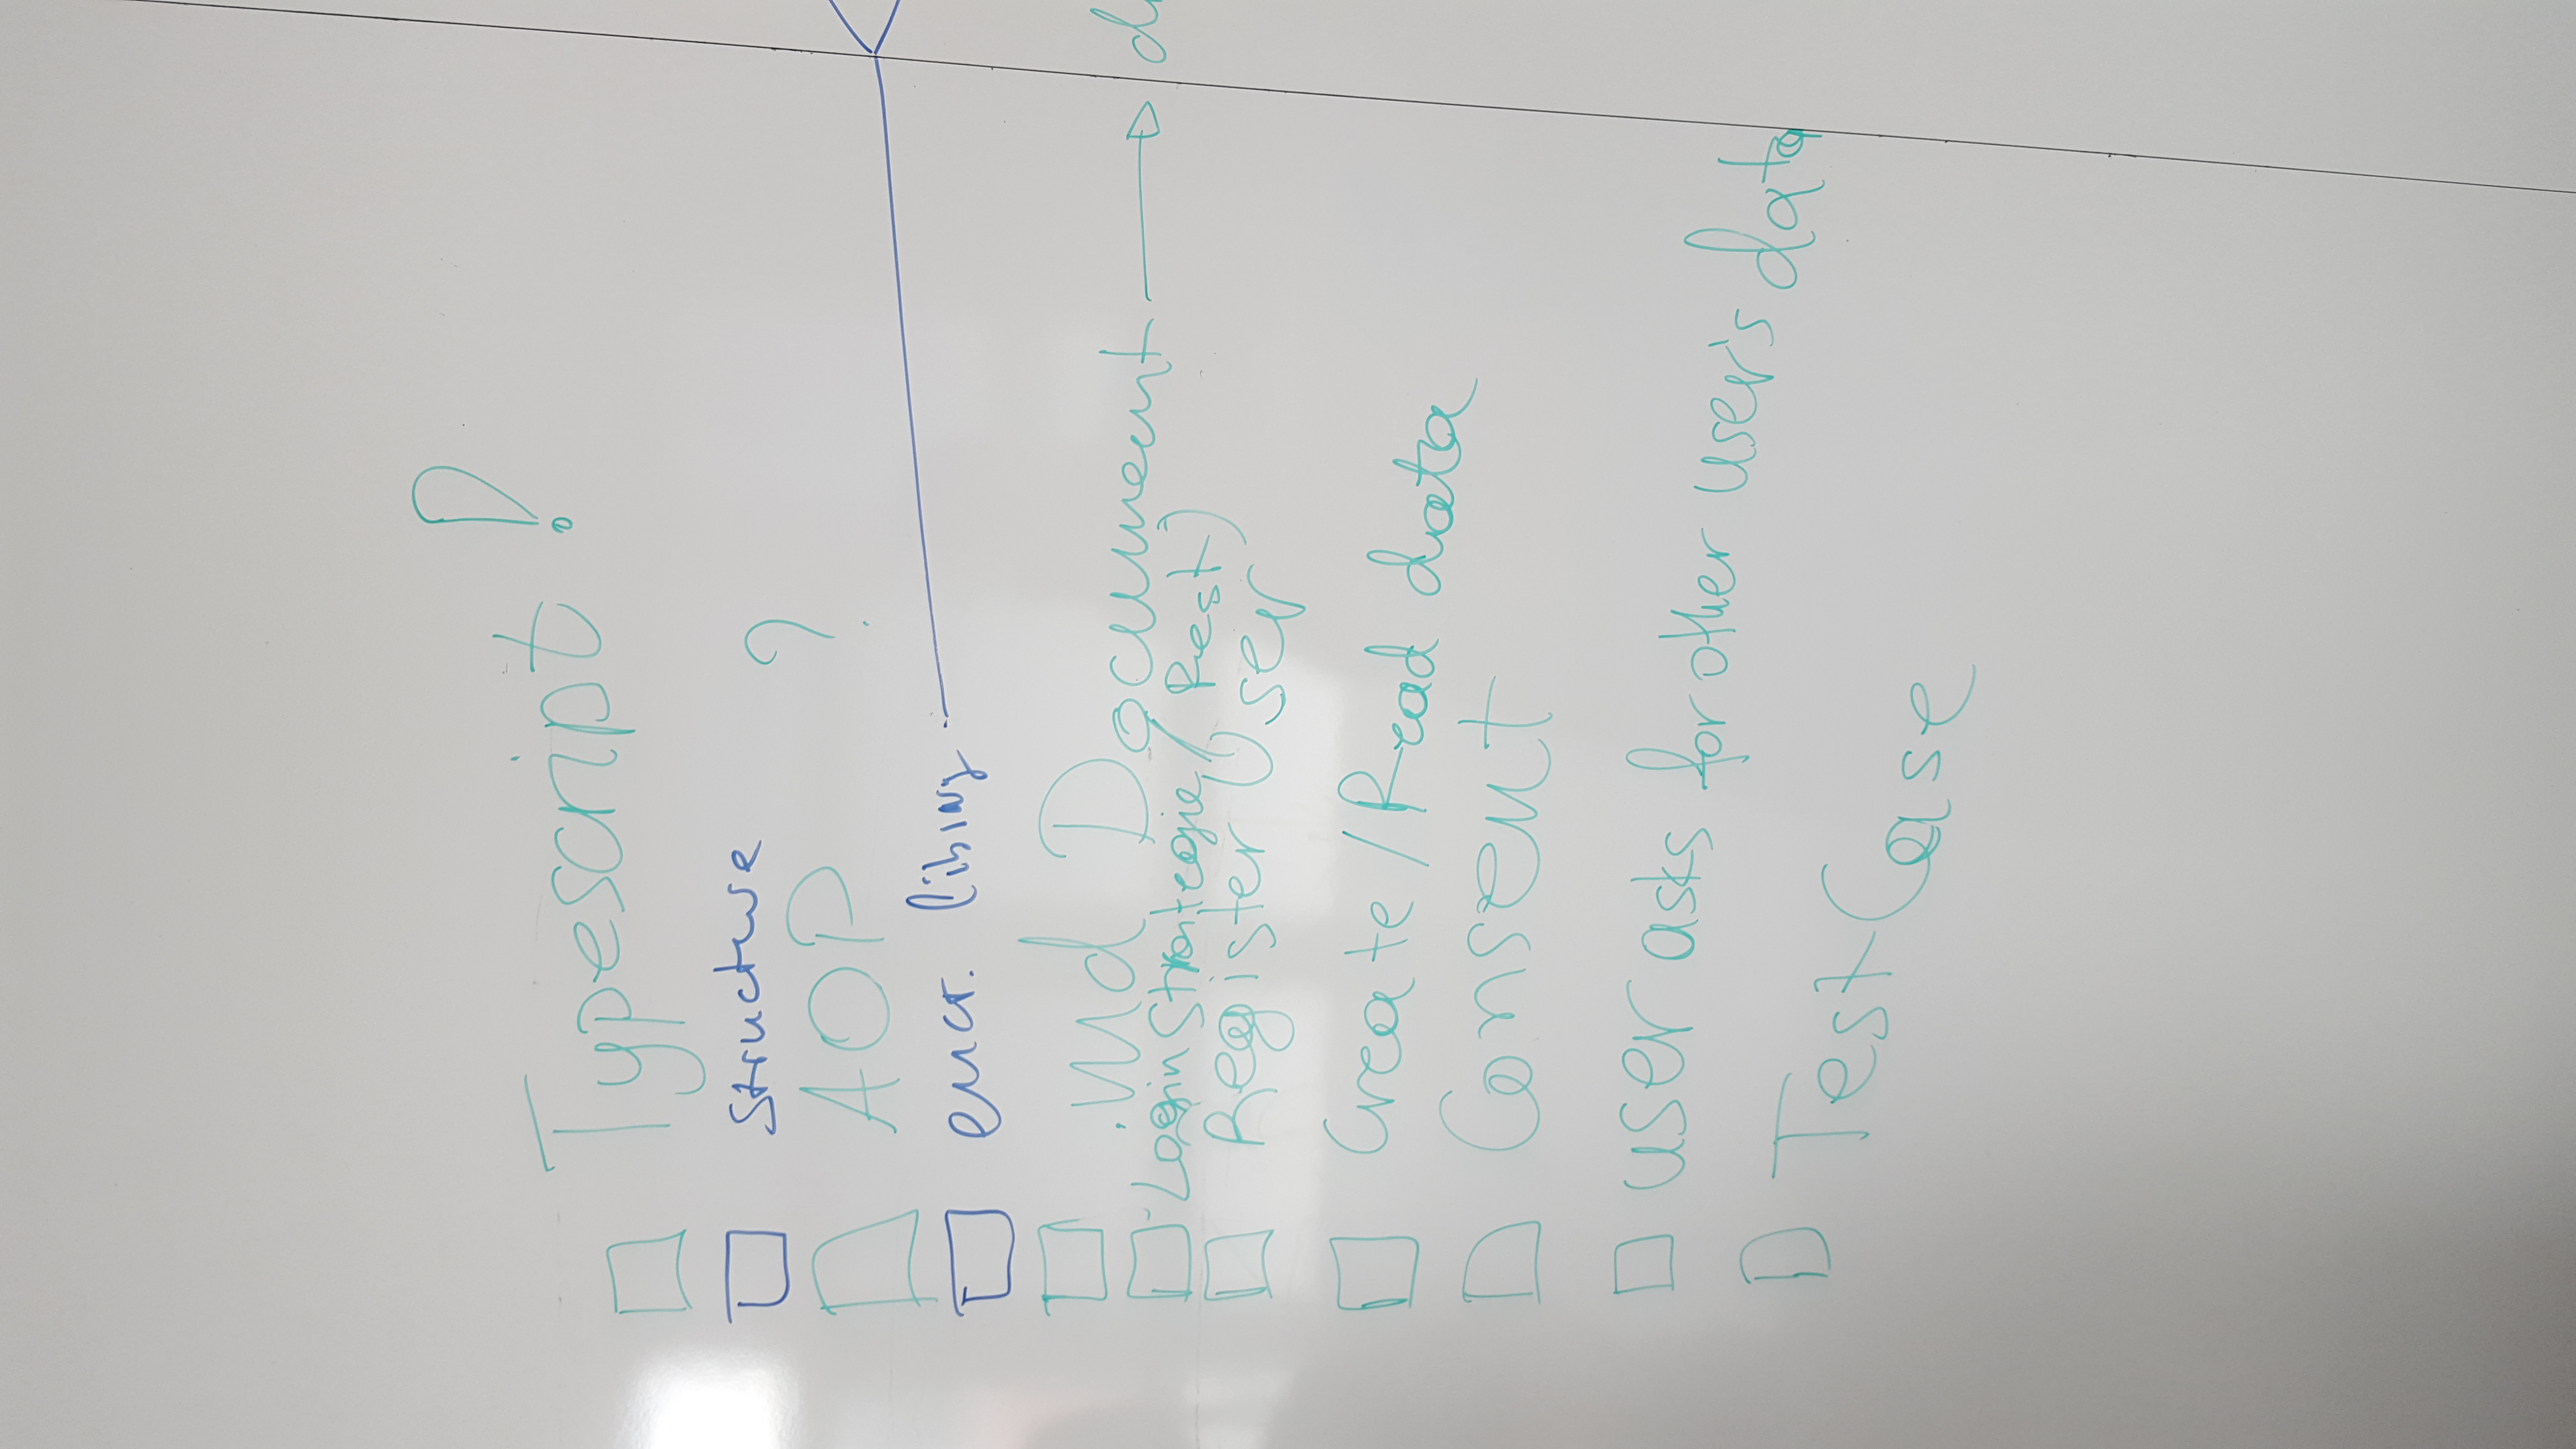 Typescript !
structure
AOP ?
encr. library
.md Document → d
Login Strategie (Rest)
Register User
Create/Read data
Consent
user asks for other user's data
TestCase